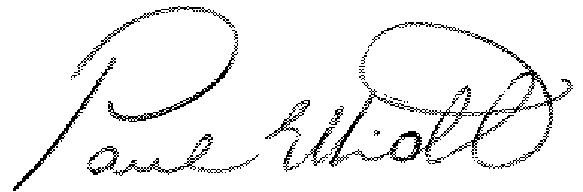 Paul Elliott